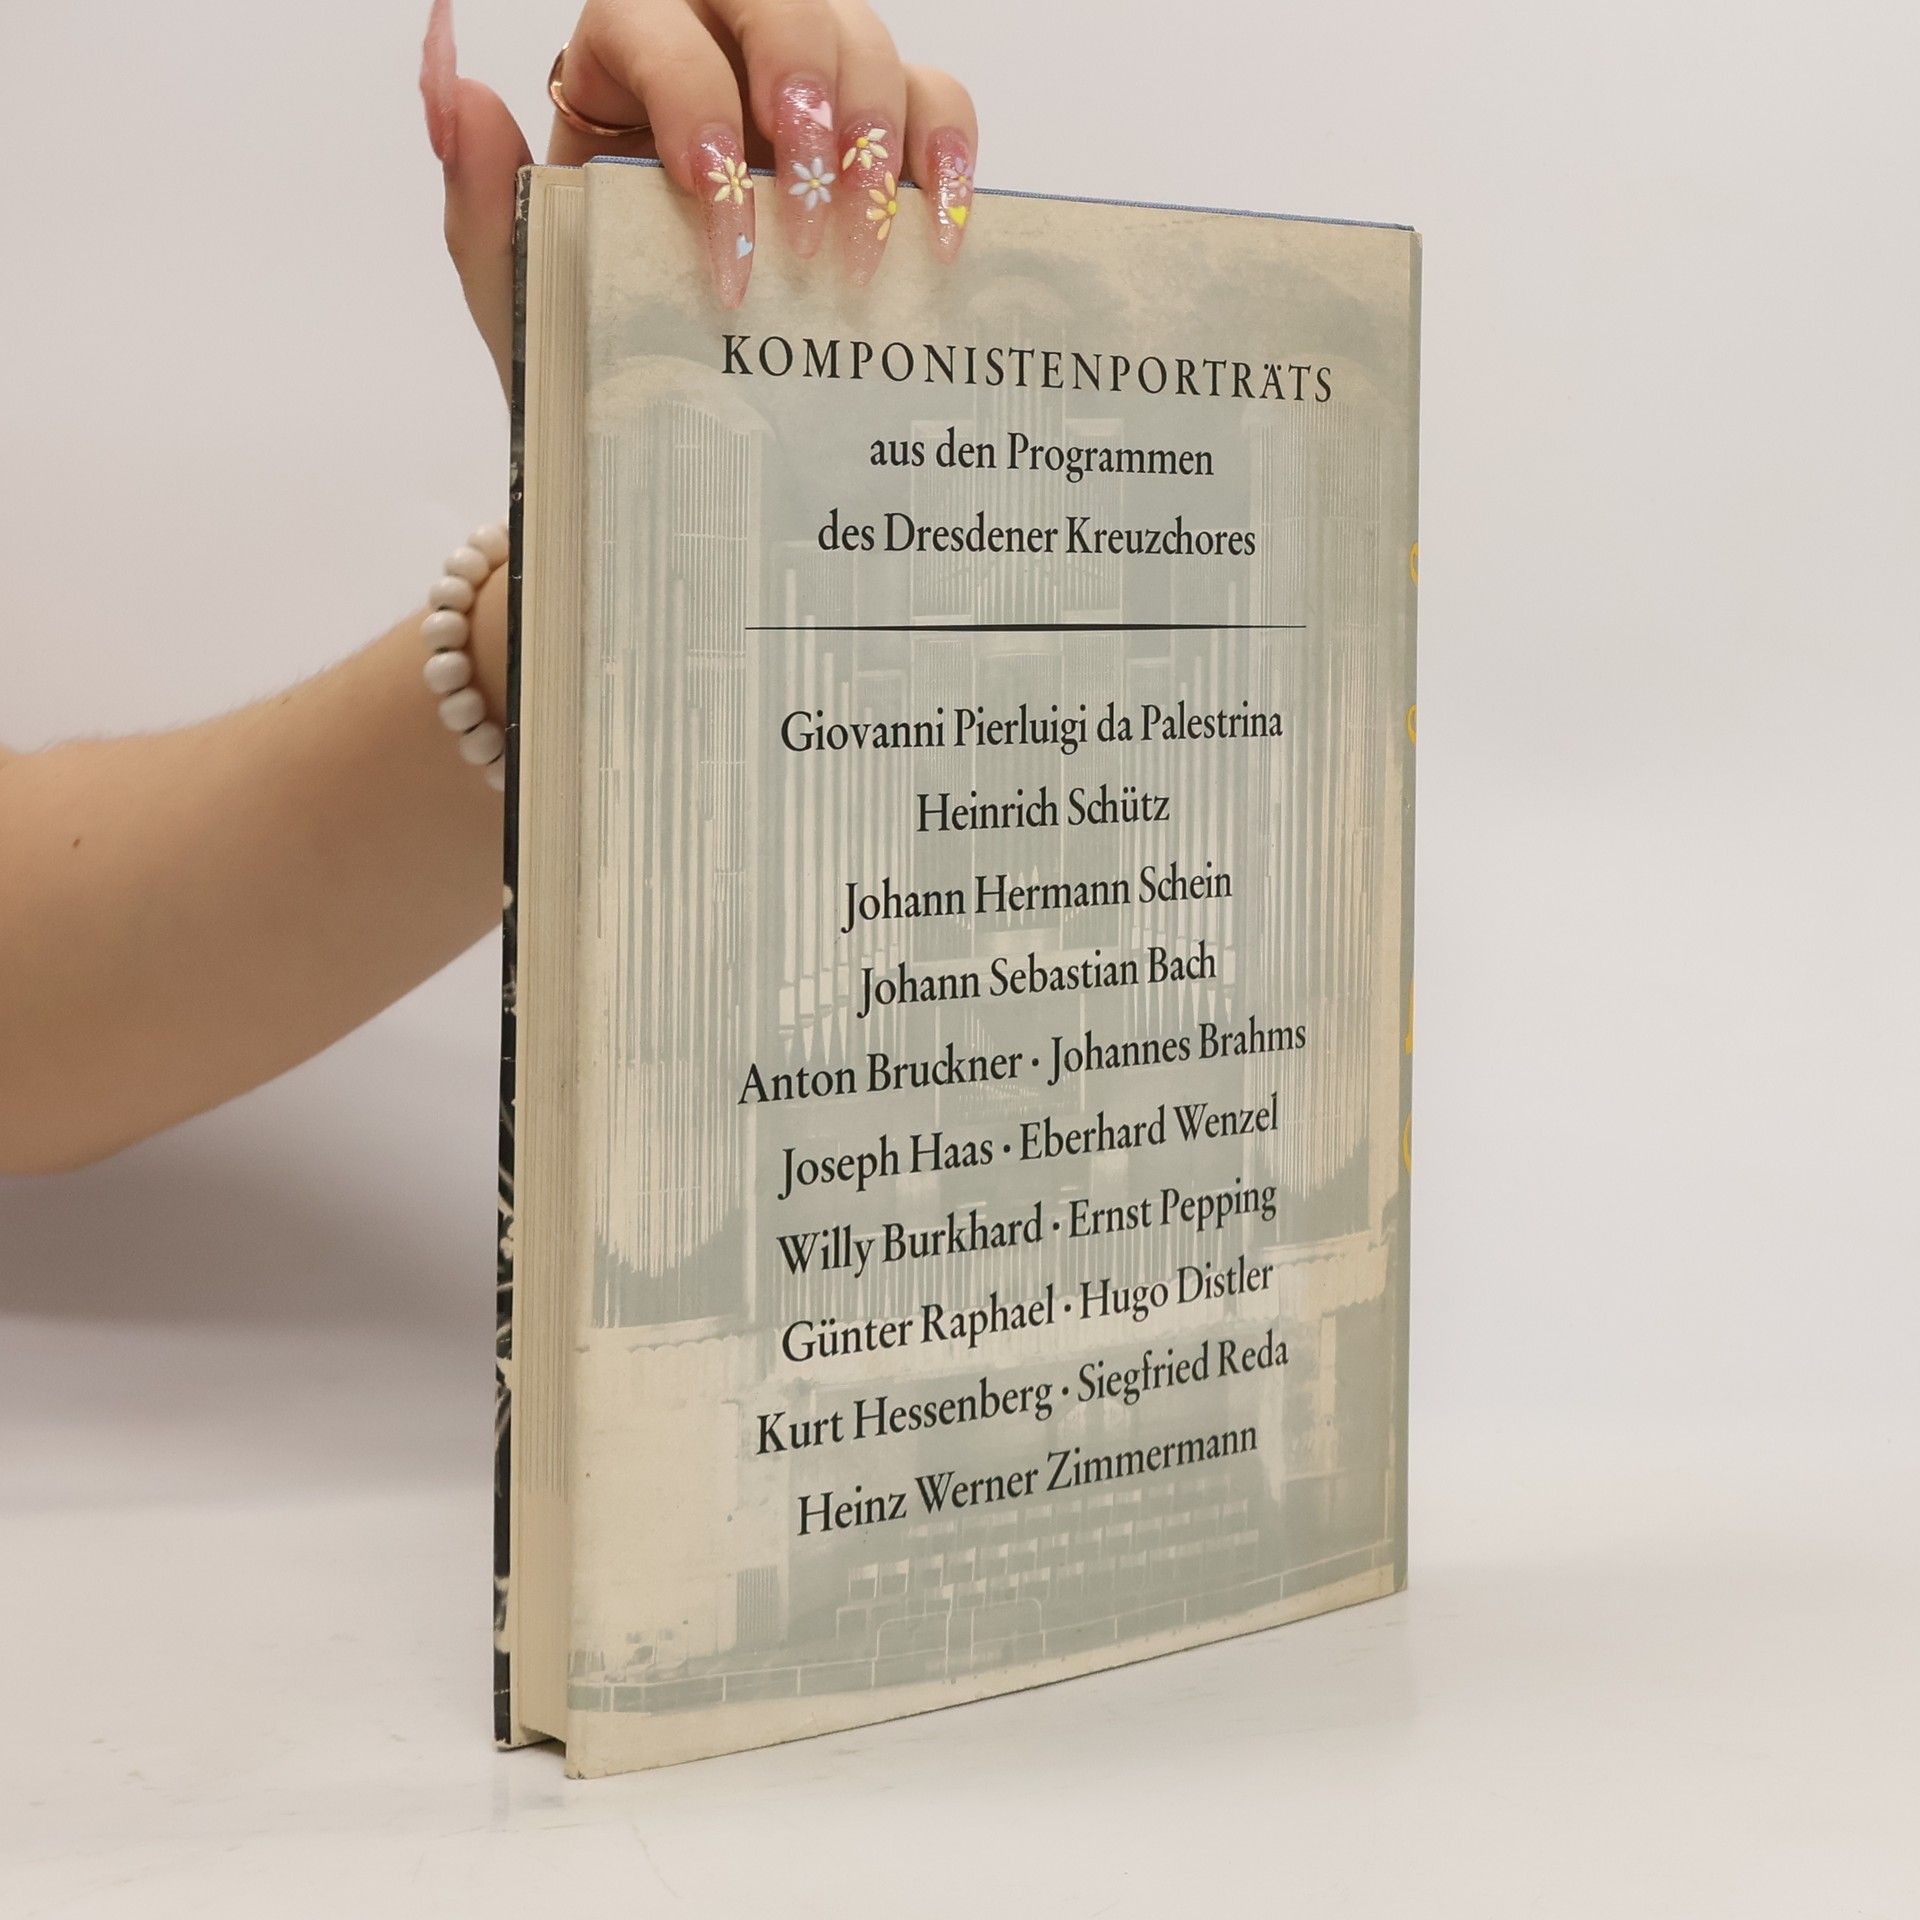 KOMPONISTENPORTRÄTS
aus den Programmen
des Dresdener Kreuzchores
Giovanni Pierluigi da Palestrina
Heinrich Schütz
Johann Hermann Schein
Johann Sebastian Bach
Anton Bruckner · Johannes Brahms
Joseph Haas · Eberhard Wenzel
Willy Burkhard · Ernst Pepping
Günter Raphael · Hugo Distler
Kurt Hessenberg · Siegfried Reda
Heinz Werner Zimmermann